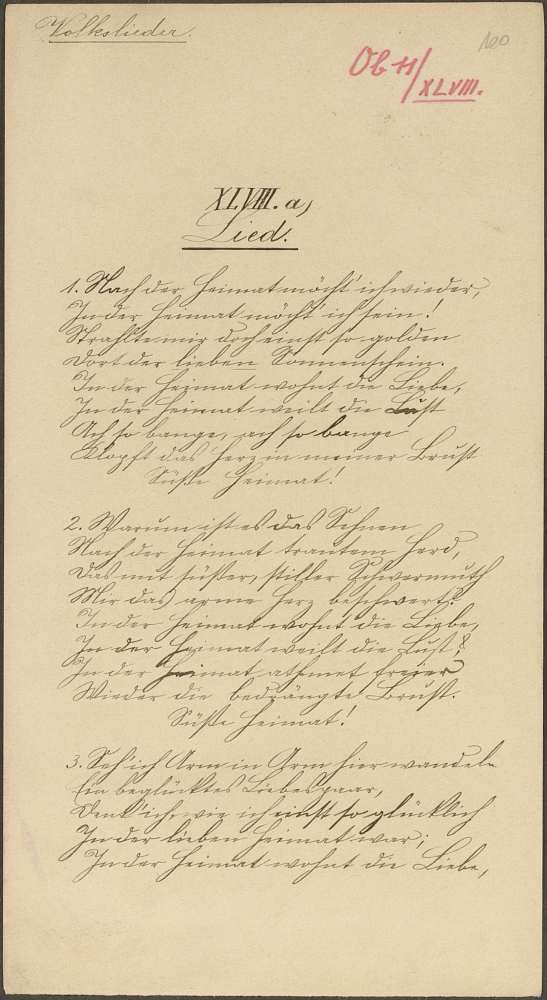 Volkslieder.
Ob 11/XLVIII.
120
XLVIII. a,
Lied.
1. Nach der Heimat möcht' ich wieder,
In der Heimat möcht' ich sein!
Strahlte mir doch einst so golden
Dort der lieben Sonnenschein.
In der Heimat wohnt die Liebe,
In der Heimat weilt die Lust
Ach so bange, ach so bange
Klopft das Herz in meiner Brust
Süße Heimat!
2. Warum ist es das Sehnen
Nach der Heimat trautem Herd,
Das mit süßer, stiller Schwermuth
Mir das arme Herz beschwert?
In der Heimat wohnt die Liebe,
In der Heimat weilt die Lust,
In der Heimat athmet freier
Wieder die bedrängte Brust.
Süße Heimat!
3. Seh' ich Arm in Arm hier wandeln
Ein beglücktes Liebespaar,
Denk' ich, wie ich einst so glücklich
In der lieben Heimat war;
In der Heimat wohnt die Liebe,